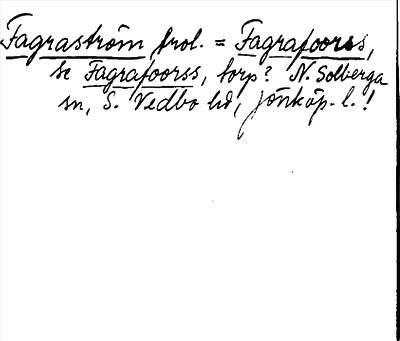 Fagraström, trol. = Fagrafoorss,
se Fagrafoorss, torp? N. Solberga
sn, S. Vedbo hd, Jönköp. l.!